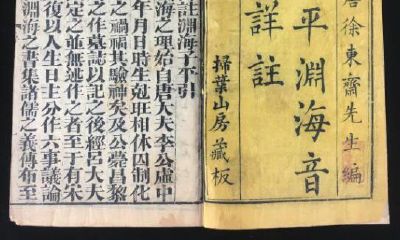 徐東齋先生編
平淵海音
詳註
掃葉山房藏板
註淵海子平引
海之理始自唐大夫李公虛中
年月日時生剋旺相休囚制化
之禍福其驗神矣及公薨昌黎
之作墓誌以記之後經呂大夫
定之並無述作之者至于有宋
復以人生日主分作六事議論
淵海之書集諸儒之義傳布至